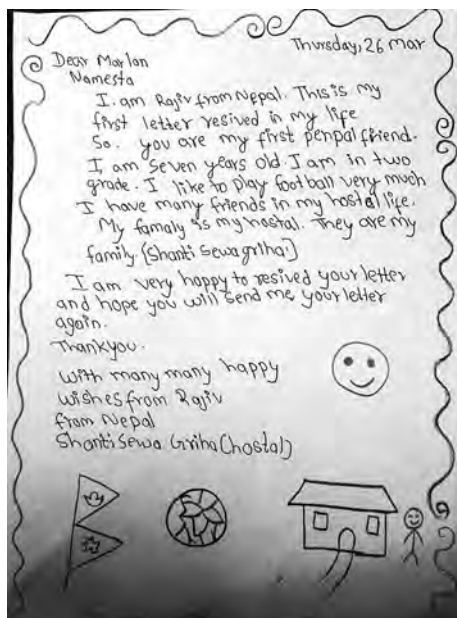 Thursday, 26 mar
Dear Marlon
Namesta
I. am Rajiv from Nepal. This is my
first letter resived in my life
So. you are my first penpal friend.
I am seven years old I am in two
grade. I like to play football very much
I have many friends in my hostel life.
My famaly is my hostal. They are my
family. (Shanti sewa griha.)
I am very happy to resived your letter
and hope you will send me your letter
again.
Thankyou.
with many many happy
wishes from Rajiv
from Nepal
Shanti sewa Griha (hostal)